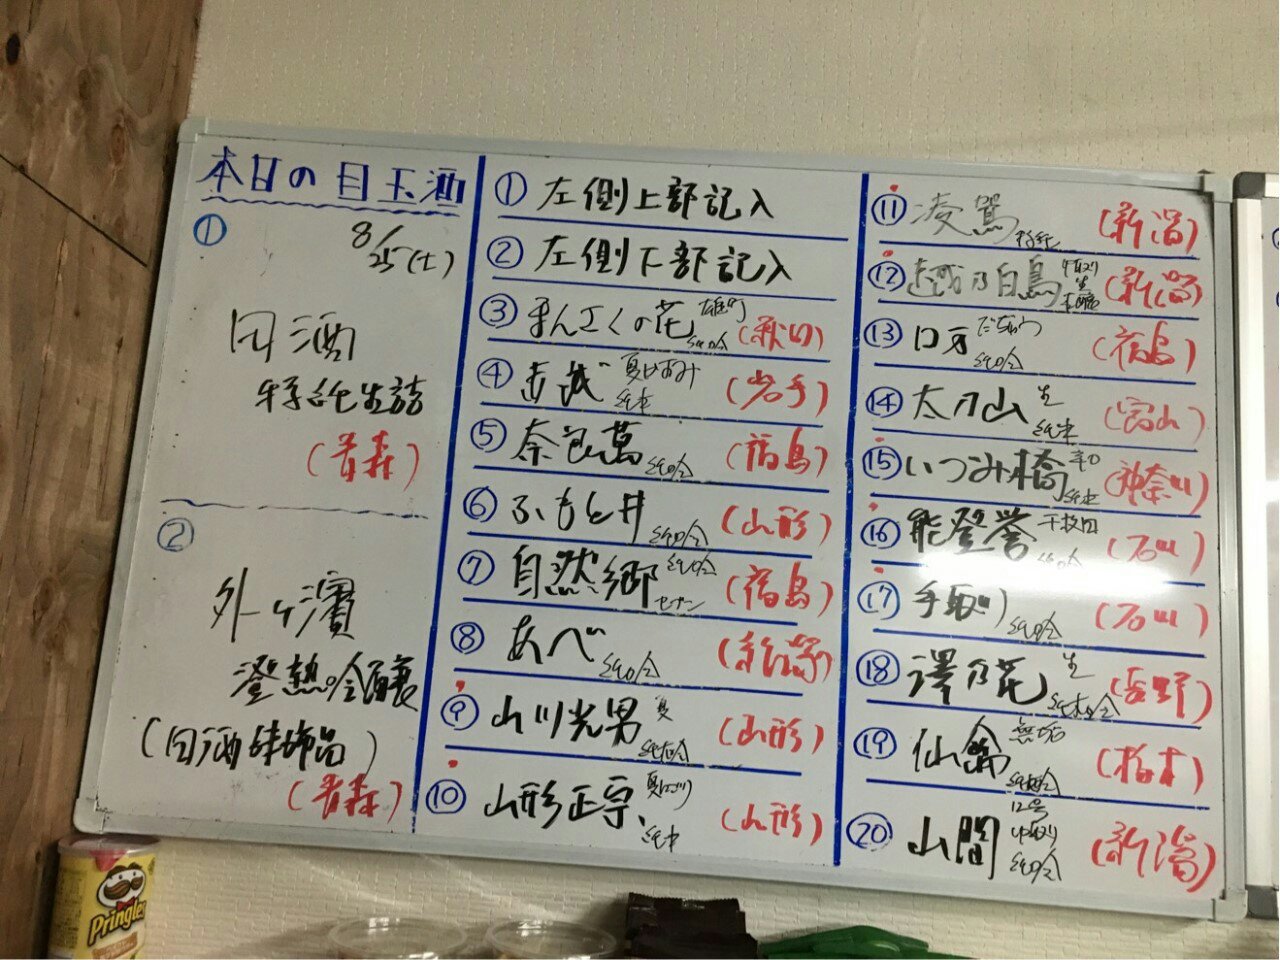 本日の目玉酒
①
8/25(土)
田酒
特純生詰
(青森)
②
外ヶ濱
澄熱吟醸
(田酒姉妹品)
(青森)
① 左側上部記入
② 左側下部記入
③ まんさくの花 雄町 純吟 (秋田)
④ 赤武 夏がすみ 純米 (岩手)
⑤ 奈良萬 純吟 (福島)
⑥ ふもと井 純吟 (山形)
⑦ 自然郷 純吟 セブン (福島)
⑧ あべ 純吟 (新潟)
⑨ 山川光男 夏 純吟 (山形)
⑩ 山形正宗 夏にごり 純米 (山形)
⑪ 凌駕 特純 (新潟)
⑫ 越乃白鳥 中取り 生 (新潟)
⑬ ロ万 だぢゅー 純吟 (福島)
⑭ 太刀山 生 純米 (富山)
⑮ いづみ橋 辛口 純米 (神奈川)
⑯ 能登誉 千枚田 純吟 (石川)
⑰ 手取川 純吟 (石川)
⑱ 澤乃花 生 純吟 (長野)
⑲ 仙禽 無垢 (栃木)
⑳ 山間 12号 中取り 純吟 (新潟)
Pringles